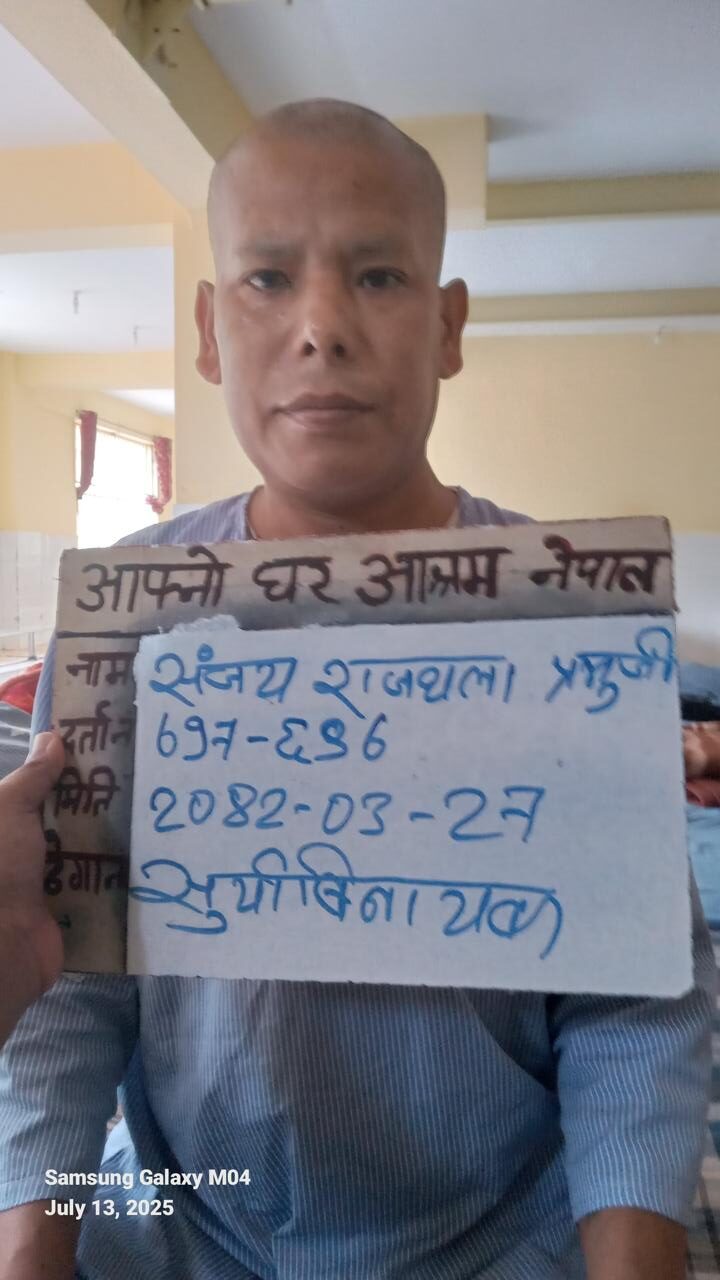 आफ्नो घर आश्रम नेपाल
नाम संजय राजथला प्रभुजी
दर्तान 697-६९6
मिति 2082-03-27
ठेगाना सुर्यबिनायक
Samsung Galaxy M04
July 13, 2025